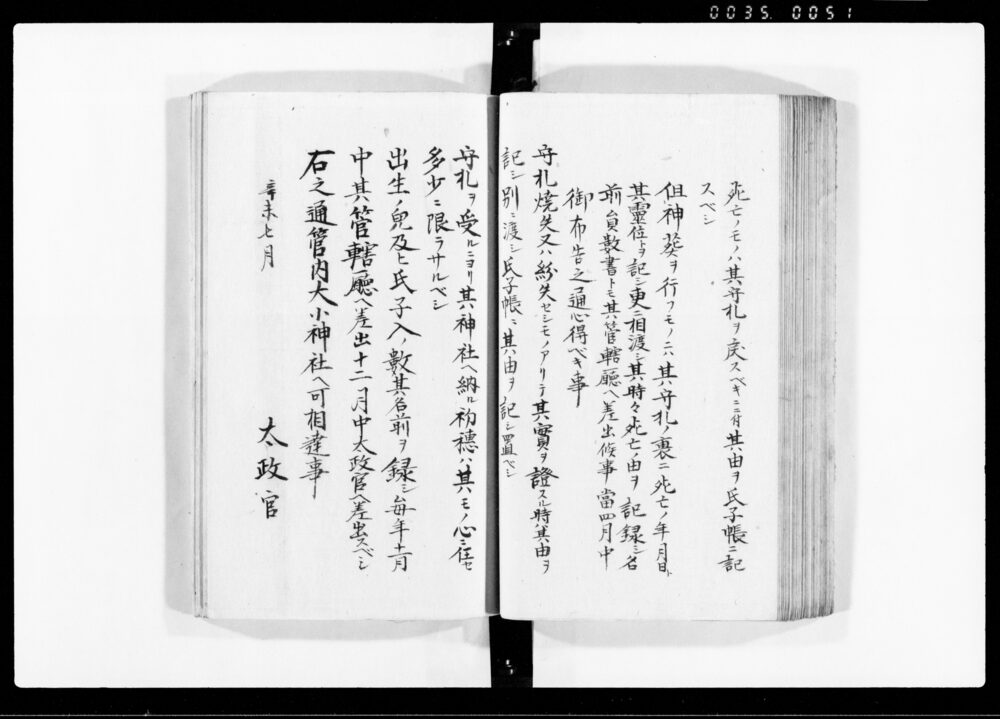 0035 0051
死亡ノモノハ其守札ヲ戻スベキニ付其由ヲ氏子帳ニ記
スベシ
但神葬ヲ行フモノニハ其守札ノ裏ニ死亡ノ年月日ト
其靈位トヲ記シ更ニ相渡シ其時々死亡ノ由ヲ記録シ名
前員數書トモ其管轄廳ヘ差出候事當四月中
御布告之通心得ベキ事
守札焼失又ハ紛失セシモノアリテ其實ヲ證スル時ハ其由ヲ
記シ別ニ渡シ氏子帳ニ其由ヲ記シ置ベシ
守札ヲ受ルニヨリ其神社ヘ納ル初穗ハ其モノノ心ニ任セ
多少ニ限ラサルベシ
出生ノ兒及ヒ氏子入ノ數其名前ヲ録シ毎年十一月
中其管轄廳ヘ差出十二月中太政官ヘ差出スベシ
右之通管内大小神社ヘ可相達事
辛未七月
太政官